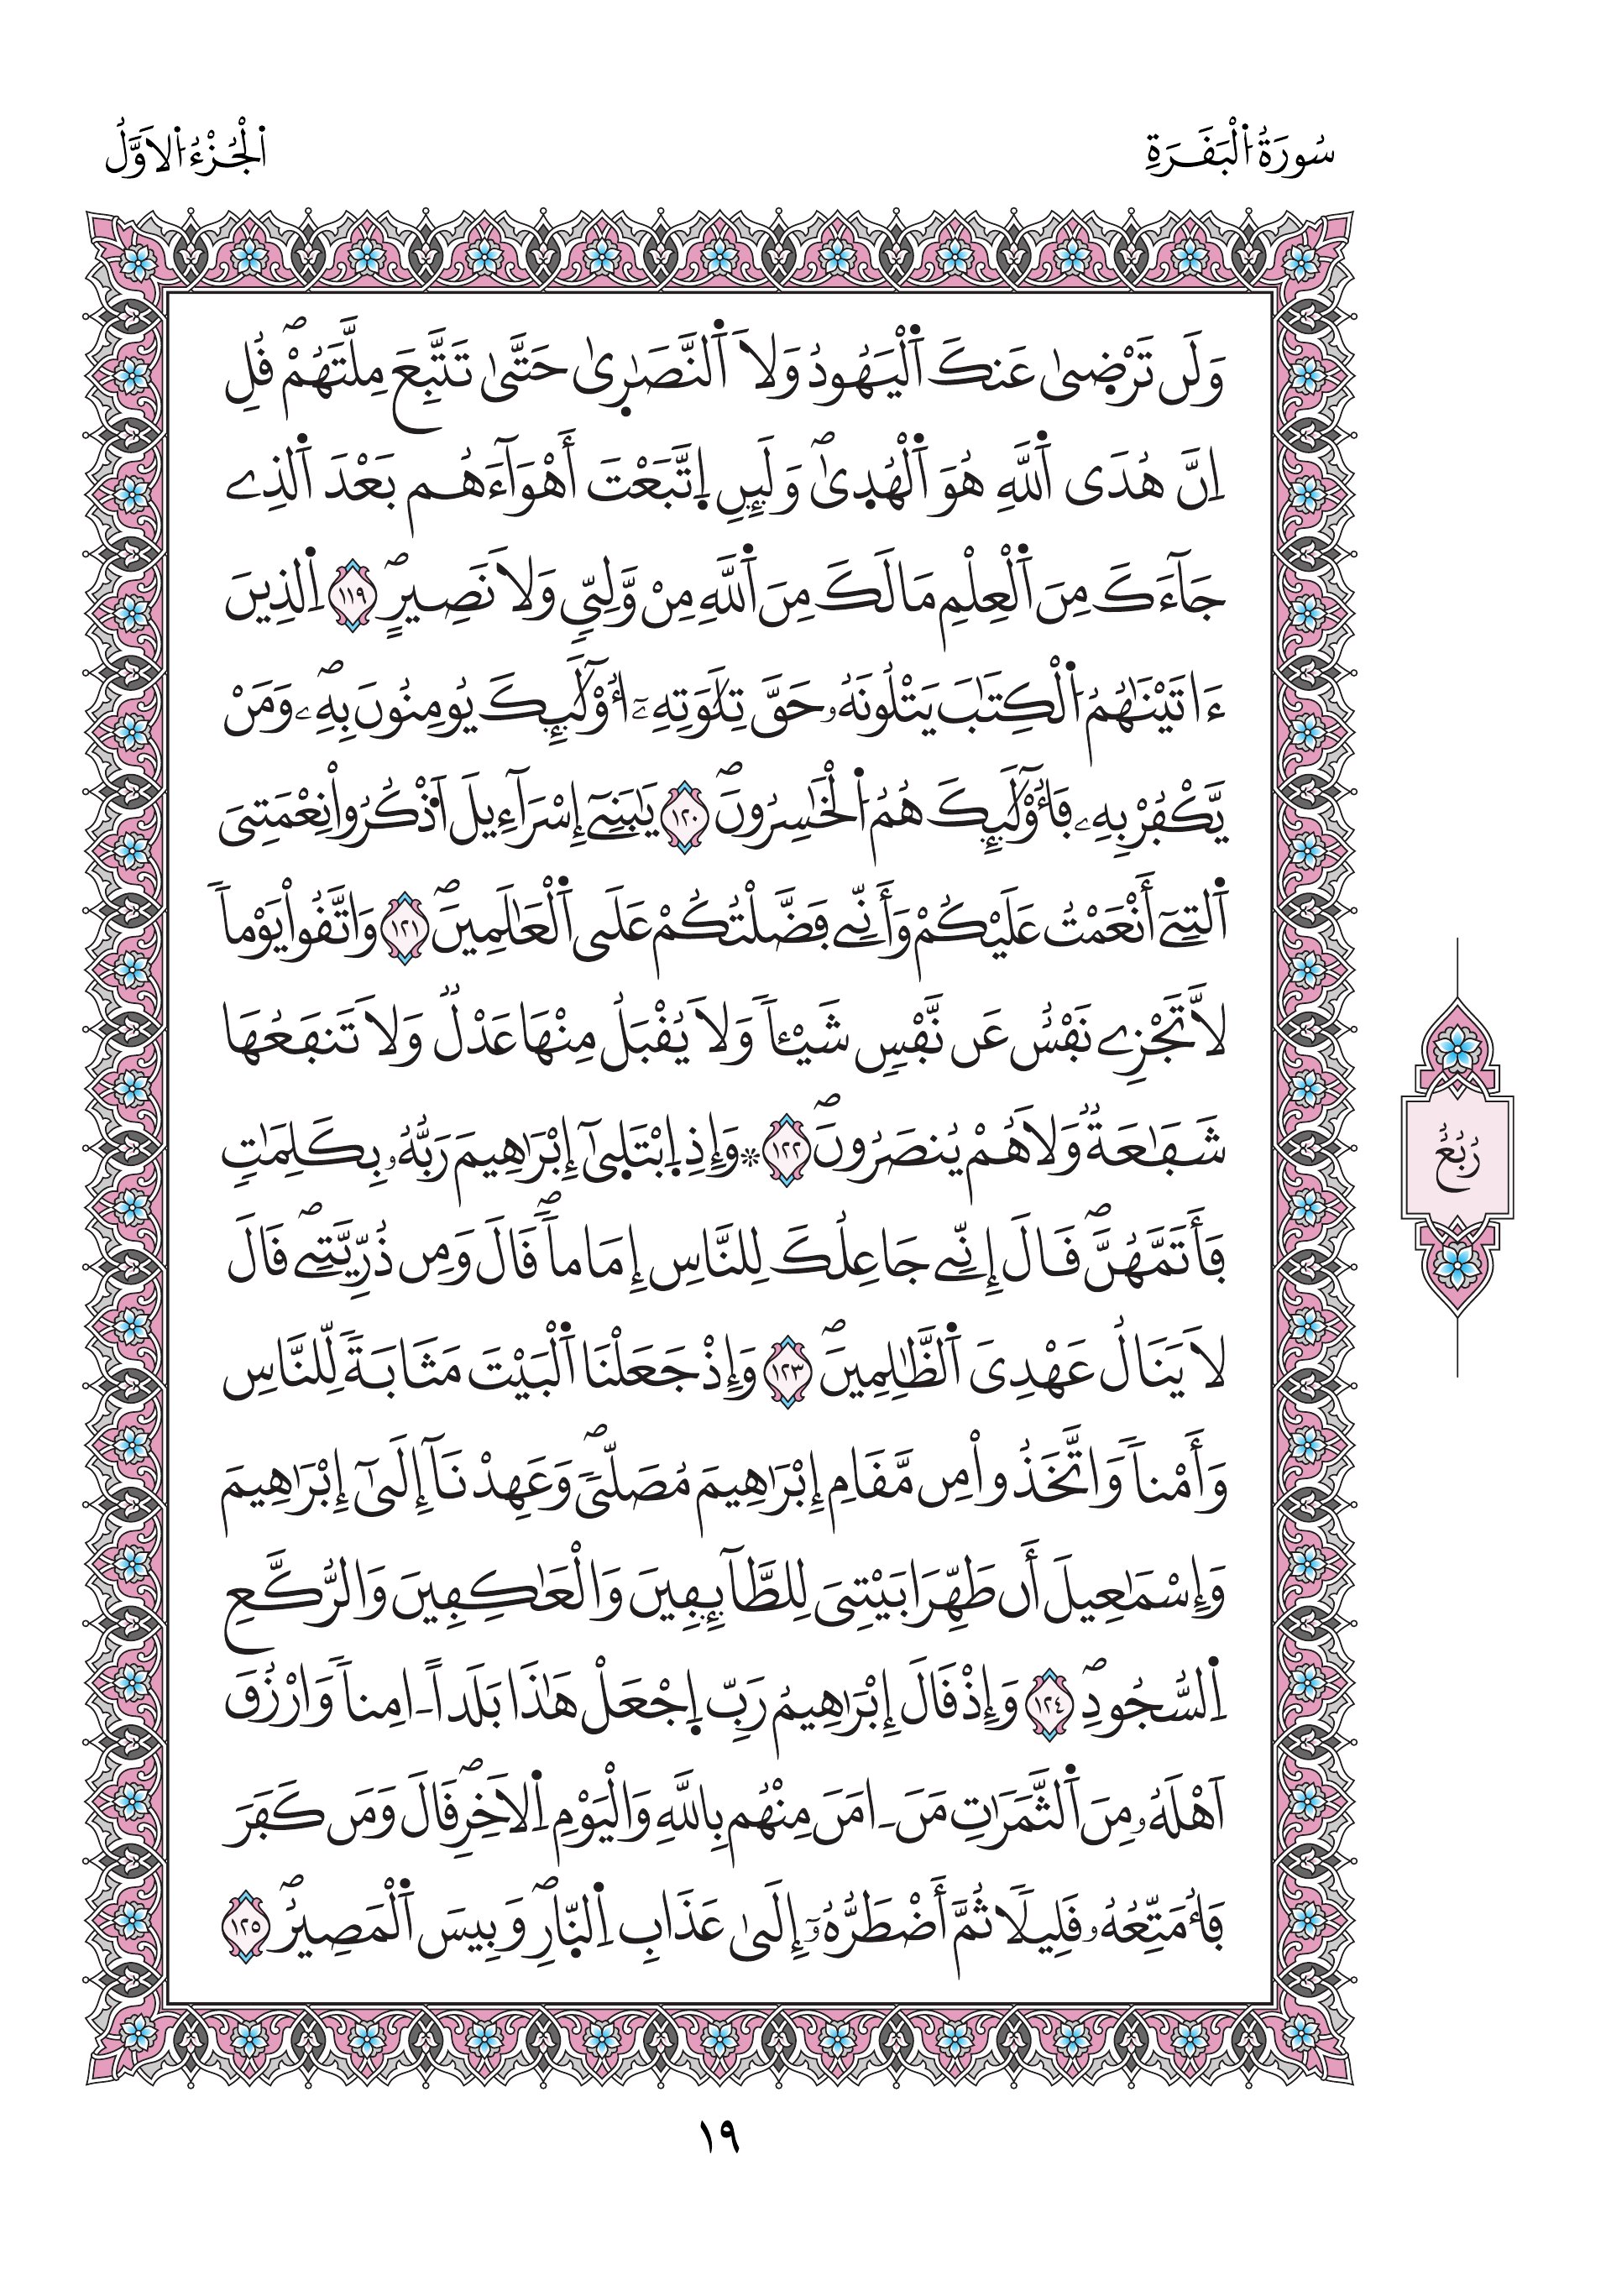 سُورَةُ اُ۬لْبَقَرَةِ
اَ۬لْجُزْءُ اُ۬لَاوَّلُ
وَلَن تَرْض۪ىٰ عَنكَ اَ۬لْيَهُودُ وَلَا اَ۬لنَّصَٰر۪ىٰ حَتَّىٰ تَتَّبِعَ مِلَّتَهُمْۖ قُلِ
اِنَّ هُدَى اَ۬للَّهِ هُوَ اَ۬لْهُد۪ىٰۖ وَلَئِنِ اِ۪تَّبَعْتَ أَهْوَآءَهُم بَعْدَ اَ۬لذِے
جَآءَكَ مِنَ اَ۬لْعِلْمِ مَا لَكَ مِنَ اَ۬للَّهِ مِنْ وَّلِيّٖ وَلَا نَصِيرٍۖ ١١٩ اِ۬لذِينَ
ءَاتَيْنَٰهُمُ اُ۬لْكِتَٰبَ يَتْلُونَهُۥ حَقَّ تِلَٰوَتِهِۦٓ أُوْلَٰٓئِكَ يُومِنُونَ بِهِۦۖ وَمَنْ
يَّكْفُرْ بِهِۦ فَأُوْلَٰٓئِكَ هُمُ اُ۬لْخَٰسِرُونَۖ ١٢٠ يَٰبَنِےٓ إِسْرَآءِيلَ اَ۟ذْكُرُواْ نِعْمَتِىَ
اَ۬لتِےٓ أَنْعَمْتُ عَلَيْكُمْ وَأَنِّے فَضَّلْتُكُمْ عَلَى اَ۬لْعَٰلَمِينَۖ ١٢١ وَاتَّقُواْ يَوْماٗ
لَّا تَجْزِے نَفْسٌ عَن نَّفْسٖ شَيْـٔاٗ وَلَا يُقْبَلُ مِنْهَا عَدْلٞ وَلَا تَنفَعُهَا
شَفَٰعَةٞ وَلَا هُمْ يُنصَرُونَۖ ١٢٢ ۞ وَإِذِ اِ۪بْتَل۪ىٰٓ إِبْرَٰهِيمَ رَبُّهُۥ بِكَلِمَٰتٖ
فَأَتَمَّهُنَّۖ قَالَ إِنِّے جَاعِلُكَ لِلنَّاسِ إِمَاماٗۖ قَالَ وَمِن ذُرِّيَّتِےۖ قَالَ
لَا يَنَالُ عَهْدِىَ اَ۬لظَّٰلِمِينَۖ ١٢٣ وَإِذْ جَعَلْنَا اَ۬لْبَيْتَ مَثَابَةٗ لِّلنَّاسِ
وَأَمْناٗ وَاتَّخَذُواْ مِن مَّقَامِ إِبْرَٰهِيمَ مُصَلّىٗۖ وَعَهِدْنَآ إِلَىٰٓ إِبْرَٰهِيمَ
وَإِسْمَٰعِيلَ أَن طَهِّرَا بَيْتِىَ لِلطَّآئِفِينَ وَالْعَٰكِفِينَ وَالرُّكَّعِ
اِ۬لسُّجُودِۖ ١٢٤ وَإِذْ قَالَ إِبْرَٰهِيمُ رَبِّ اِ۪جْعَلْ هَٰذَا بَلَداً اٰمِناٗ وَارْزُقَ
اَهْلَهُۥ مِنَ اَ۬لثَّمَرَٰتِ مَنَ اٰمَنَ مِنْهُم بِاللَّهِ وَالْيَوْمِ اِ۬لَاخِرِۖ قَالَ وَمَن كَفَرَ
فَأُمَتِّعُهُۥ قَلِيلاٗ ثُمَّ أَضْطَرُّهُۥٓ إِلَىٰ عَذَابِ اِ۬لنّ۪ارِۖ وَبِيسَ اَ۬لْمَصِيرُۖ ١٢٥
رُبُعُ
١٩